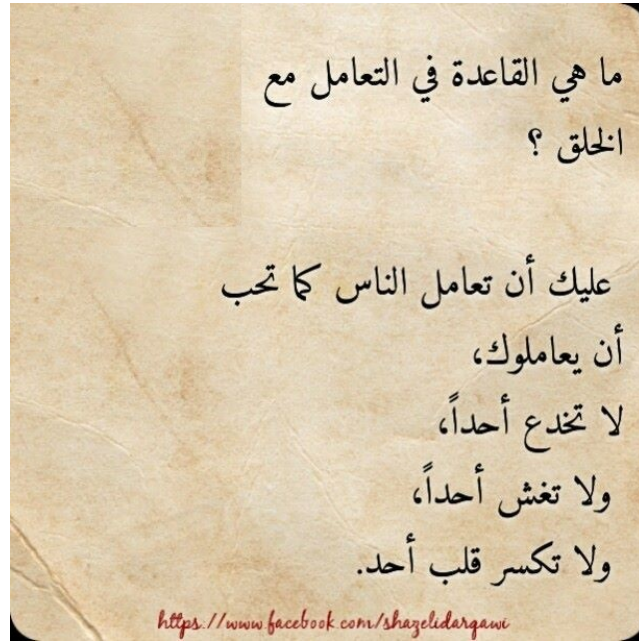 ما هي القاعدة في التعامل مع
الخلق ؟
عليك أن تعامل الناس كما تحب
أن يعاملوك،
لا تخدع أحداً،
ولا تغش أحداً،
ولا تكسر قلب أحد.
https://www.facebook.com/shazelidarqawi